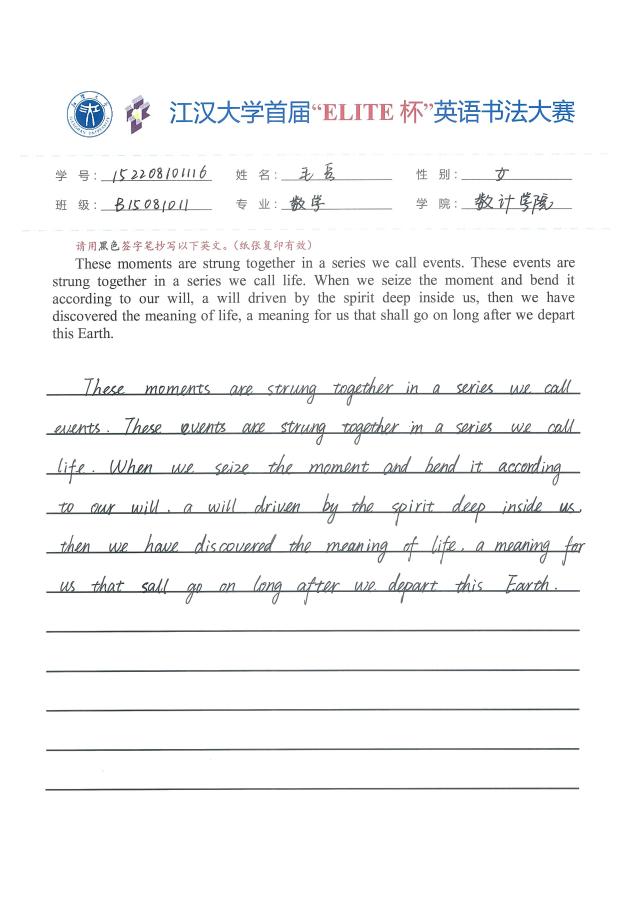 江汉大学首届“ELITE 杯”英语书法大赛
学 号: 152208101116 姓 名: 王 性 别: 女
班 级: B15081011 专 业: 数学 学 院: 数计学院
请用黑色签字笔抄写以下英文。(纸张复印有效)
These moments are strung together in a series we call events. These events are
strung together in a series we call life. When we seize the moment and bend it
according to our will, a will driven by the spirit deep inside us, then we have
discovered the meaning of life, a meaning for us that shall go on long after we depart
this Earth.
These moments are strung together in a series we call
events. These events are strung together in a series we call
life. When we seize the moment and bend it according
to our will, a will driven by the spirit deep inside us,
then we have discovered the meaning of life, a meaning for
us that sall go on long after we depart this Earth.